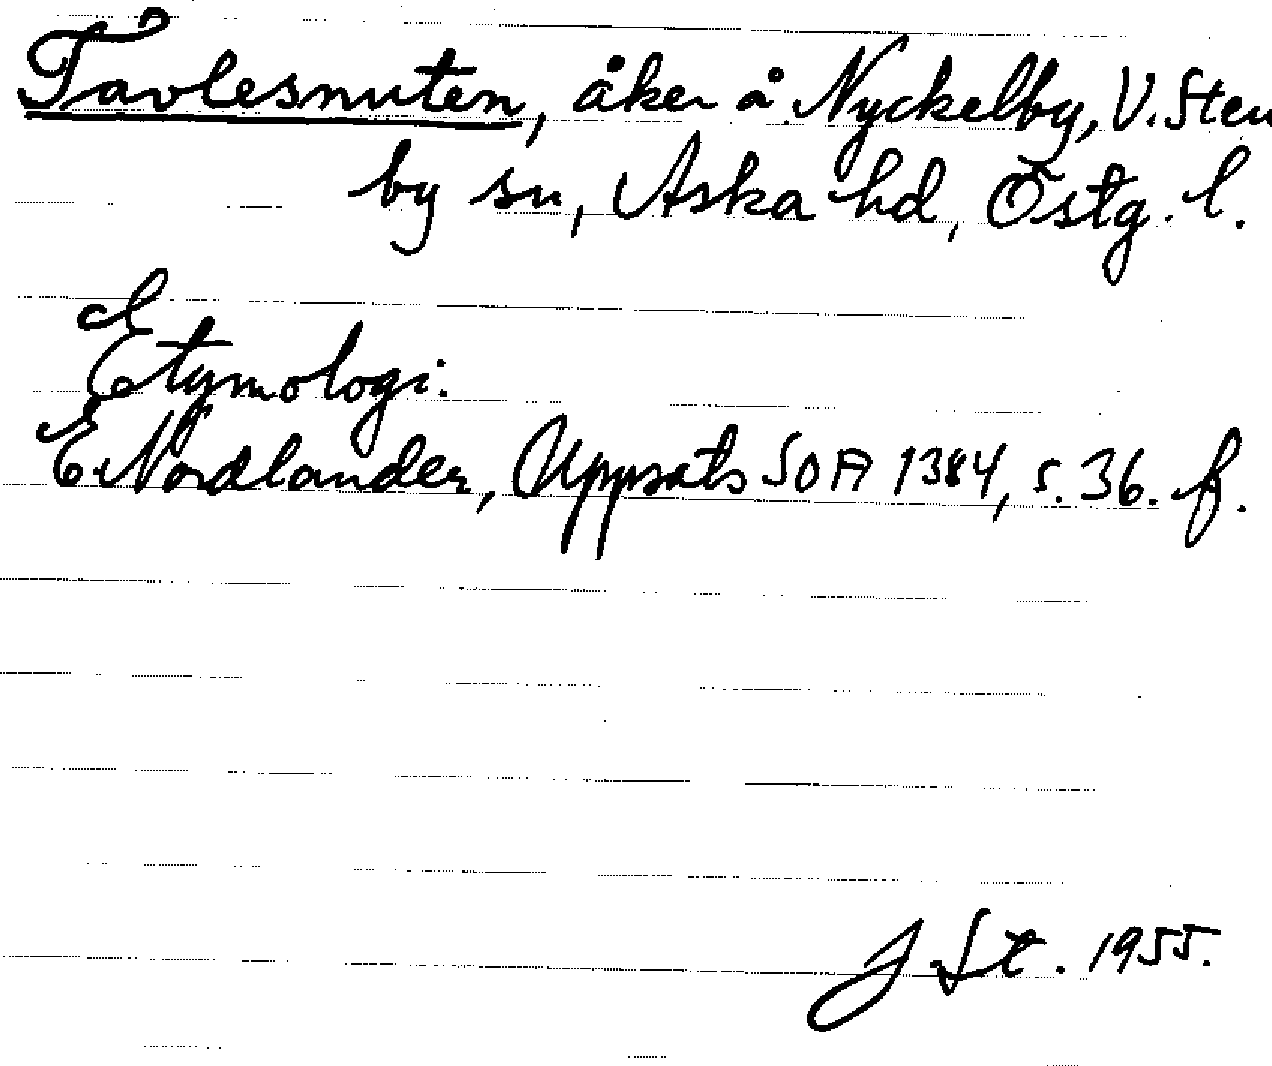 Tavlesnuten, åker å Nyckelby, V. Sten
by sn, Aska hd, Östg. l.
Etymologi:
E Nordlander, Uppsats SOA 1384, s. 36. f.
J St. 1955.